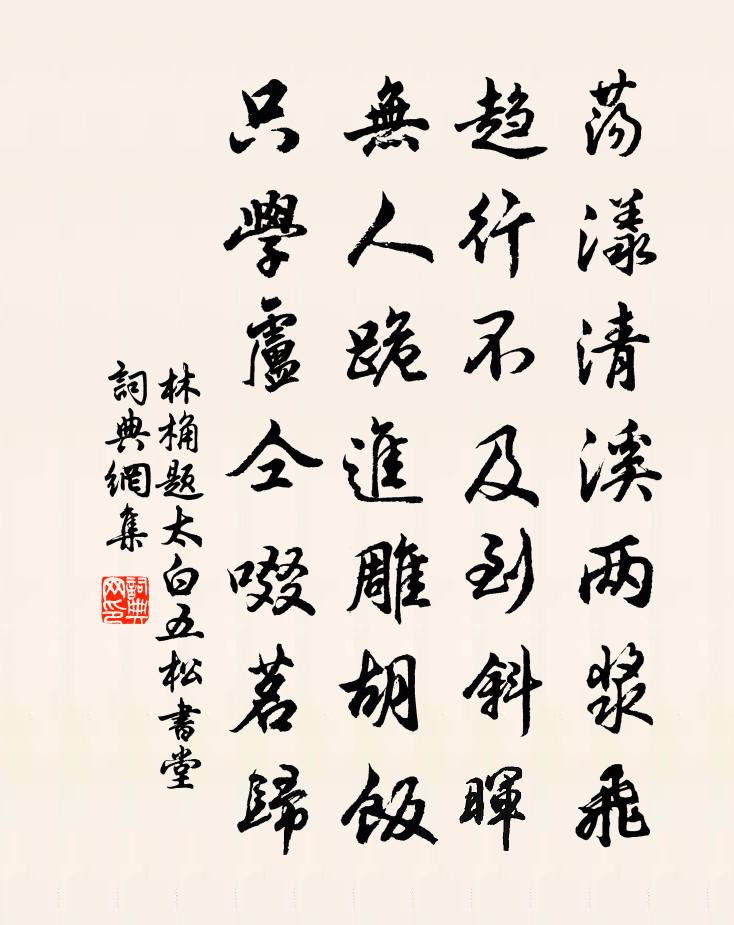 荡漾清溪两浆飛
趋行不及到斜暉
無人跪進雕胡飯
只學盧仝啜茗歸
林桷题太白五松書堂
詞典網集
詞典網印